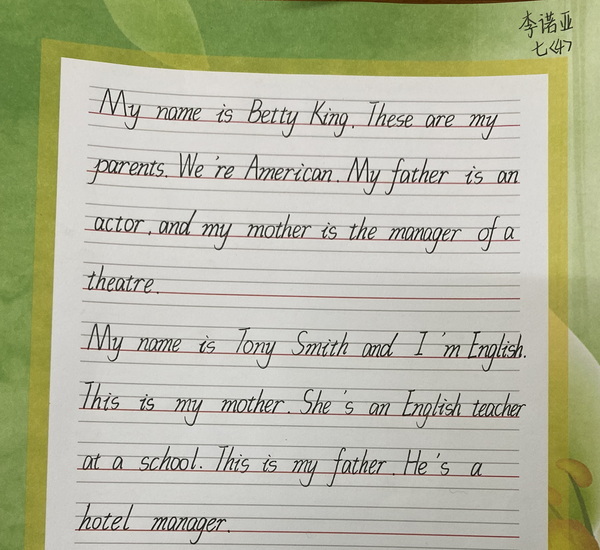 李诺亚
七<4>
My name is Betty King. These are my
parents. We're American. My father is an
actor, and my mother is the manager of a
theatre.
My name is Tony Smith and I'm English.
This is my mother. She's an English teacher
at a school. This is my father. He's a
hotel manager.